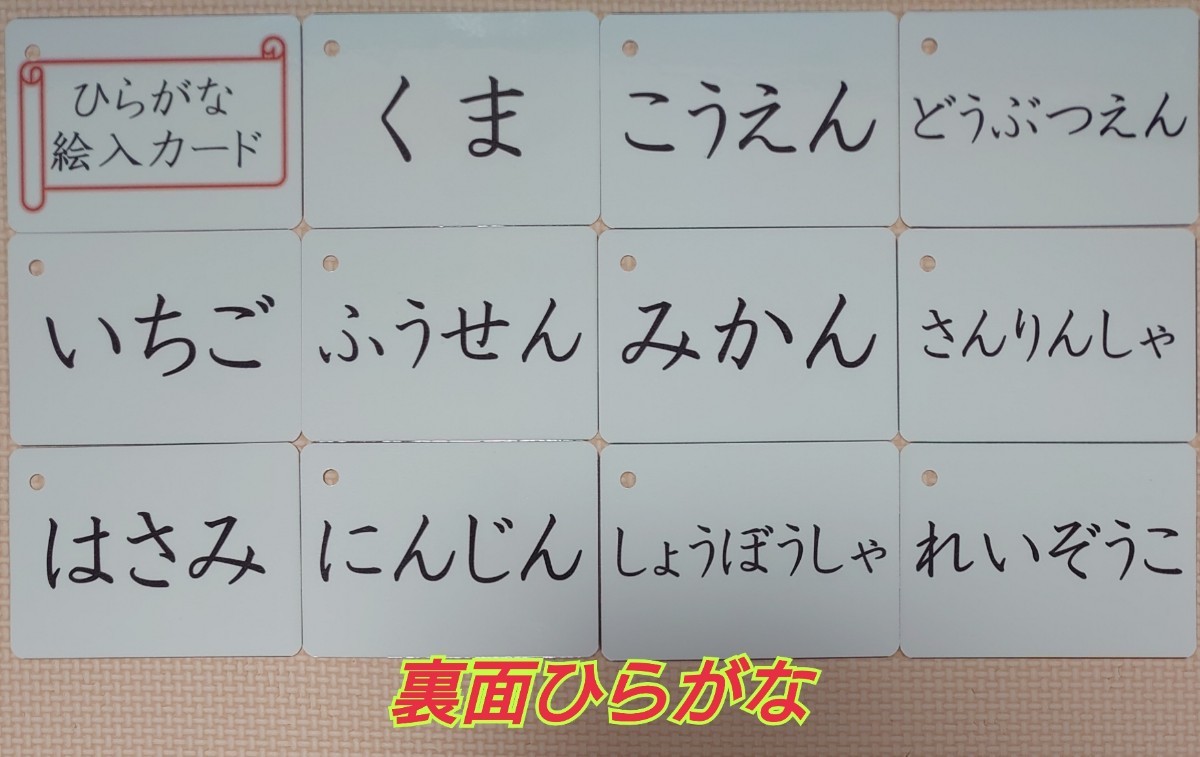 ひらがな
絵入カード
くま
こうえん
どうぶつえん
いちご
ふうせん
みかん
さんりんしゃ
はさみ
にんじん
しょうぼうしゃ
れいぞうこ
裏面ひらがな